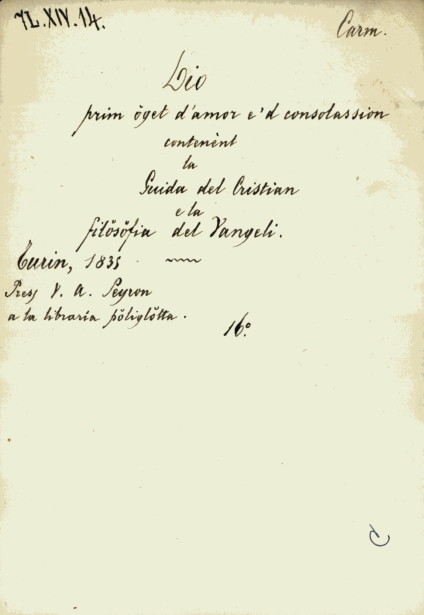 72.XIV.14.
Carm.
Dio
prim öget d'amor e'd consolassion
contenènt
la
Guida del Cristian
e la
filösöfia del Vangeli.
Turin, 1835
Press V. A. Peyron
a la libraria pöliglötta.
16º